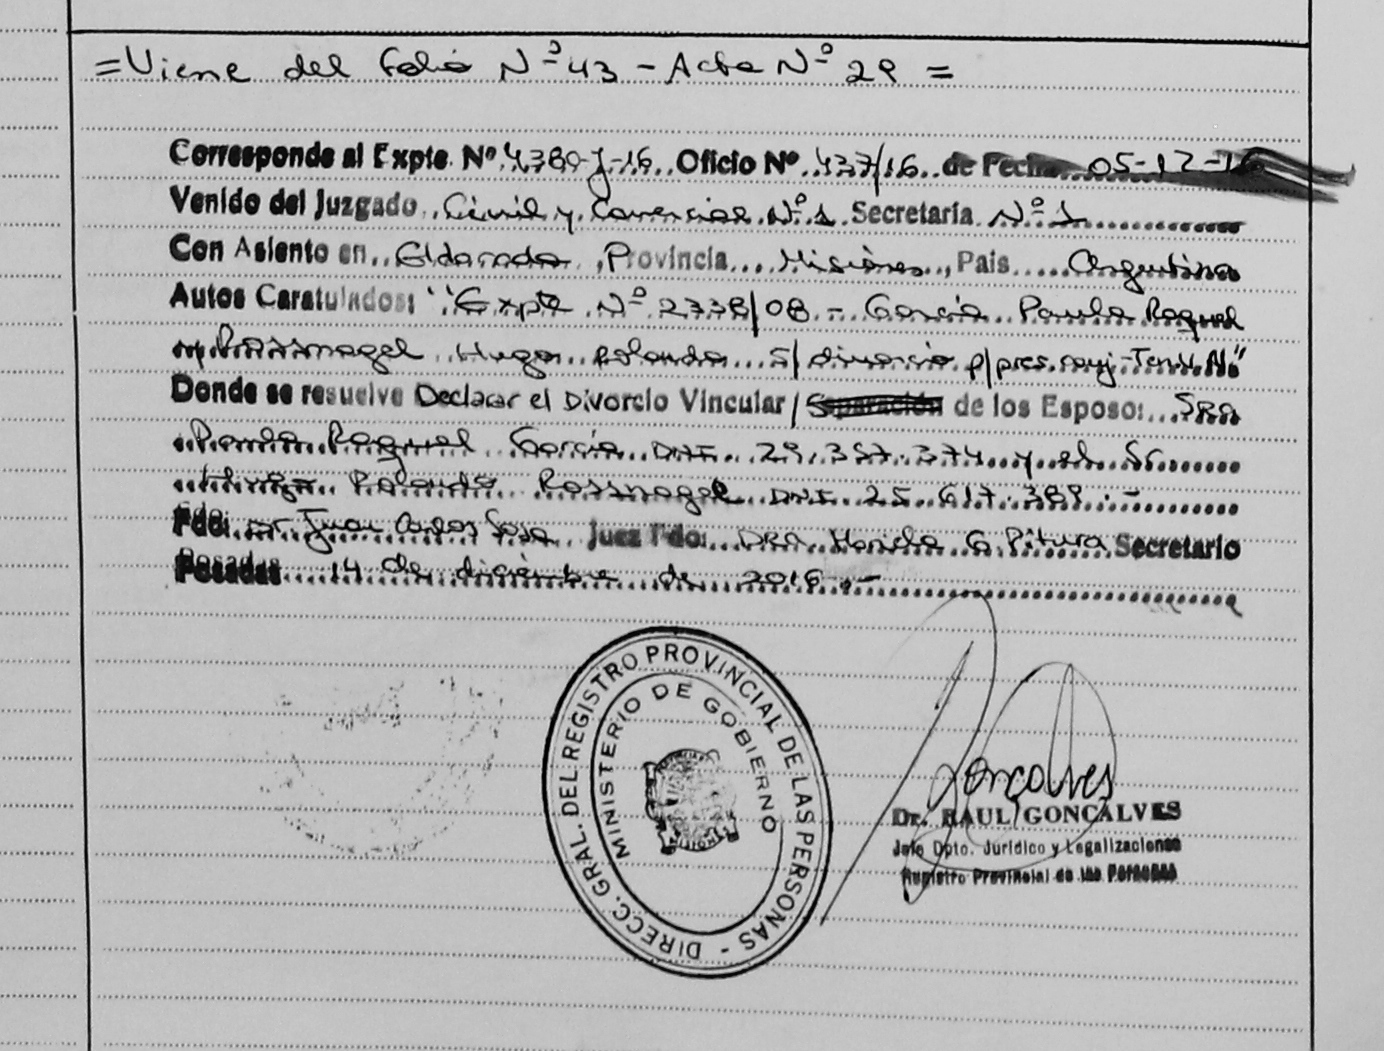 =Viene del folio Nº 43 - Acta Nº 29 =
Corresponde al Expte. Nº 4380-J-16 Oficio Nº 437/16 de Fecha 05-12-16
Venido del Juzgado Civil y Comercial Nº 1 Secretaría Nº 1
Con Asiento en Eldorado, Provincia Misiones, Pais Argentina
Autos Caratulados: "Expte Nº 2738/08 - García Paula Raquel
Rossnagel Hugo Rolando S/ divorcio p/pres. conj-
Donde se resuelve Declarar el Divorcio Vincular / Separación de los Esposo: Sra
Paula Raquel García DNI 29.357.374 y el Sr
Hugo Rolando Rossnagel DNI 25.617.389.-
Fdo: Dr Juan Carlos Sosa Juez Fdo: DRA Mariela G Secretario
Posadas 14 de diciembre de 2016.-
DIRECC. GRAL. DEL REGISTRO PROVINCIAL DE LAS PERSONAS -
MINISTERIO DE GOBIERNO
Goncalves
Dr. RAUL GONCALVES
Jefe Dpto. Jurídico y Legalizaciones
Registro Provincial de las Personas